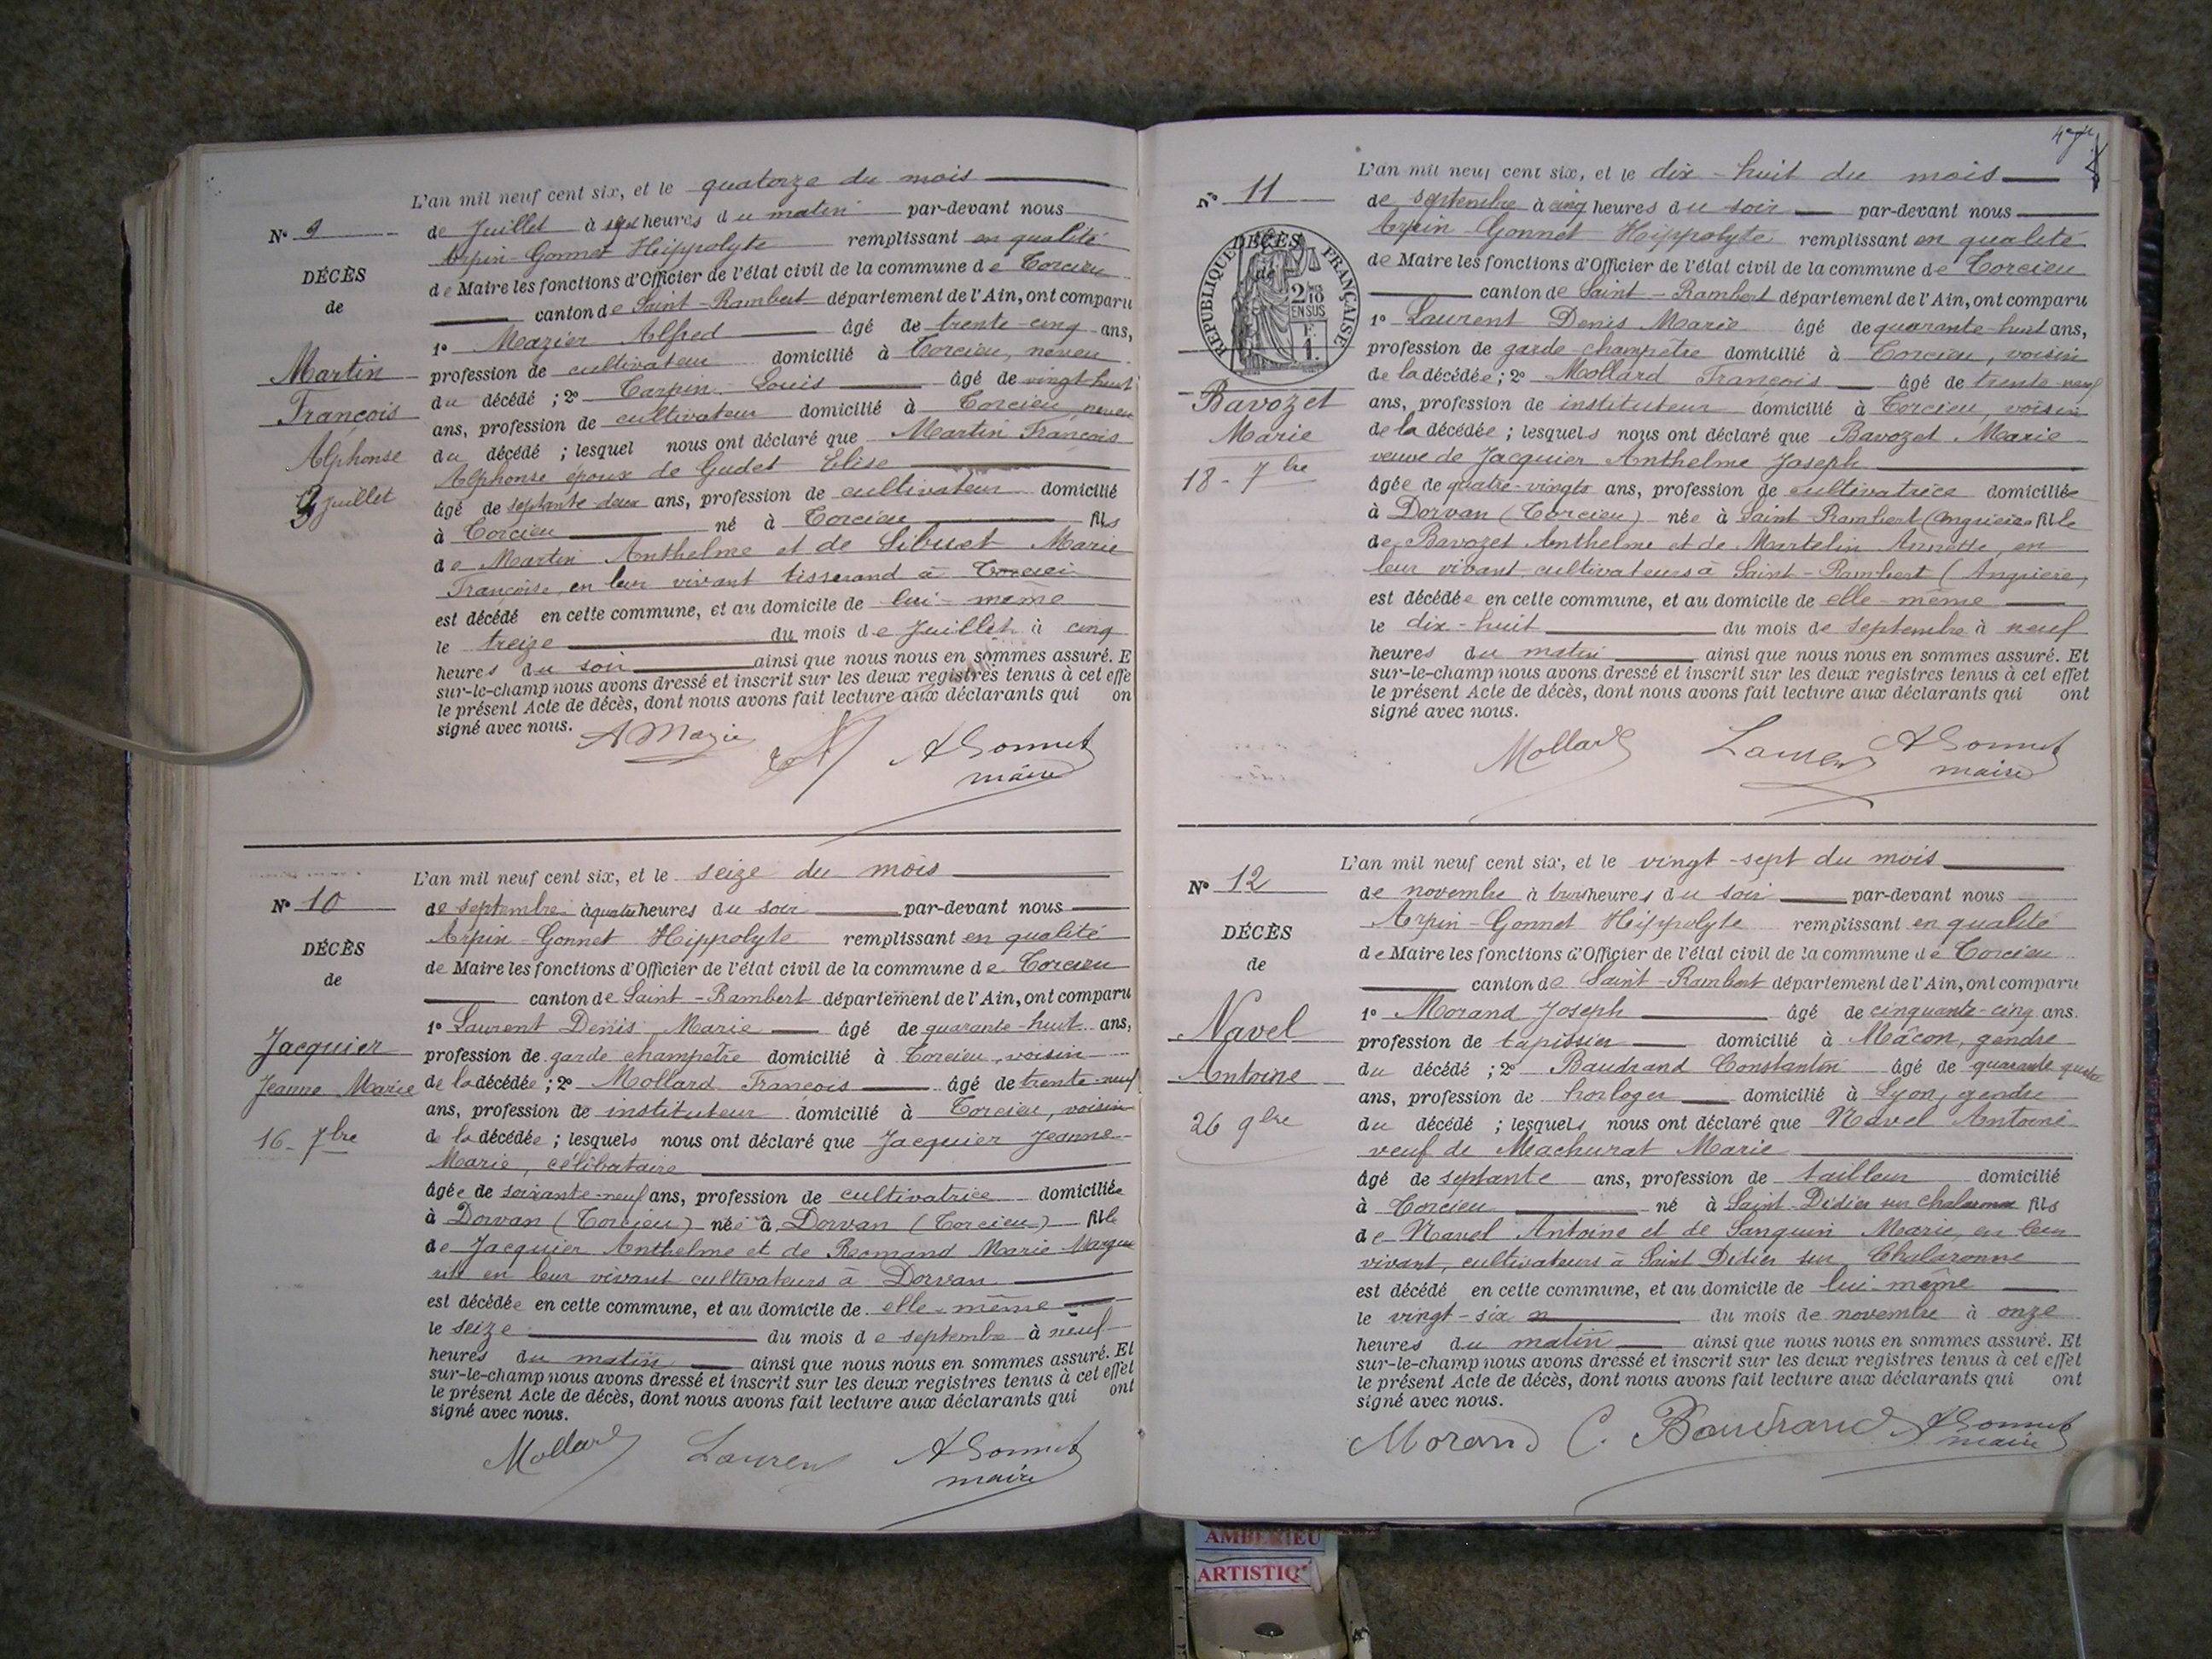 L'an mil neuf cent six, et le quatorze du mois
N° 9
de Juillet à sept heures du matin par-devant nous
Arpin-Gonnet Hippolyte remplissant en qualité
DÉCÈS
de
de Maire les fonctions d'Officier de l'état civil de la commune de Torcieu
canton de Saint-Rambert département de l'Ain, ont comparu
1° Mazier Alfred âgé de trente-cinq ans,
Martin
François
Alphonse
13 juillet
profession de cultivateur domicilié à Torcieu, neveu
du décédé ; 2° Carpin Louis âgé de vingt-huit
ans, profession de cultivateur domicilié à Torcieu, neveu
du décédé ; lesquel nous ont déclaré que Martin François
Alphonse époux de Gudet Elise
âgé de septante deux ans, profession de cultivateur domicilié
à Torcieu né à Torcieu fils
de Martin Anthelme et de Sibuet Marie
Françoise, en leur vivant tisserand à Torcieu
est décédé en cette commune, et au domicile de lui-même
le treize du mois de Juillet à cinq
heures du soir ainsi que nous nous en sommes assuré. E
sur-le-champ nous avons dressé et inscrit sur les deux registres tenus à cet effe
le présent Acte de décès, dont nous avons fait lecture aux déclarants qui on
signé avec nous.
A Mazie
A Gonnet
maire
L'an mil neuf cent six, et le seize du mois
N° 10
de septembre à quatre heures du soir par-devant nous
Arpin-Gonnet Hippolyte remplissant en qualité
DÉCÈS
de
de Maire les fonctions d'Officier de l'état civil de la commune de Torcieu
canton de Saint-Rambert département de l'Ain, ont comparu
1° Laurent Denis Marie âgé de quarante-huit ans,
Jacquier
Jeanne Marie
16 - 7bre
profession de garde champetre domicilié à Torcieu, voisin
de la décédée ; 2° Mollard François âgé de trente-neuf
ans, profession de instituteur domicilié à Torcieu, voisin
de la décédée ; lesquels nous ont déclaré que Jacquier Jeanne-
Marie, célibataire
âgée de soixante-neuf ans, profession de cultivatrice domiciliée
à Dorvan (Torcieu) née à Dorvan (Torcieu) fille
de Jacquier Anthelme et de Romand Marie Margue
rite en leur vivant cultivateurs à Dorvan
est décédée en cette commune, et au domicile de elle-même
le seize du mois de septembre à neuf
heures du matin ainsi que nous nous en sommes assuré. Et
sur-le-champ nous avons dressé et inscrit sur les deux registres tenus à cet effet
le présent Acte de décès, dont nous avons fait lecture aux déclarants qui ont
signé avec nous.
Mollard Laurent A Gonnet
maire
L'an mil neuf cent six, et le dix-huit du mois
N° 11
de septembre à cinq heures du soir par-devant nous
Arpin-Gonnet Hippolyte remplissant en qualité
DÉCÈS
de
RÉPUBLIQUE FRANÇAISE
2/10 EN SUS
F. 1.
de Maire les fonctions d'Officier de l'état civil de la commune de Torcieu
canton de Saint-Rambert département de l'Ain, ont comparu
1° Laurent Denis Marie âgé de quarante-huit ans,
profession de garde-champêtre domicilié à Torcieu, voisin
de la décédée ; 2° Mollard François âgé de trente-neuf
Bavozet
Marie
18 - 7bre
ans, profession de instituteur domicilié à Torcieu, voisin
de la décédée ; lesquels nous ont déclaré que Bavozet Marie
veuve de Jacquier Anthelme Joseph
âgée de quatre-vingts ans, profession de cultivatrice domiciliée
à Dorvan (Torcieu) née à Saint-Rambert (Angrières fille
de Bavozet Anthelme et de Martelin Annette, en
leur vivant cultivateurs à Saint-Rambert (Angriere,
est décédée en cette commune, et au domicile de elle-même
le dix-huit du mois de septembre à neuf
heures du matin ainsi que nous nous en sommes assuré. Et
sur-le-champ nous avons dressé et inscrit sur les deux registres tenus à cet effet
le présent Acte de décès, dont nous avons fait lecture aux déclarants qui ont
signé avec nous.
Mollard Laurent A Gonnet
maire
L'an mil neuf cent six, et le vingt-sept du mois
N° 12
de novembre à trois heures du soir par-devant nous
Arpin-Gonnet Hippolyte remplissant en qualité
DÉCÈS
de
de Maire les fonctions d'Officier de l'état civil de la commune de Torcieu
canton de Saint-Rambert département de l'Ain, ont comparu
1° Morand Joseph âgé de cinquante-cinq ans.
Navel
Antoine
26 9bre
profession de tapissier domicilié à Mâcon, gendre
du décédé ; 2° Baudrand Constantin âgé de quarante quatre
ans, profession de horloger domicilié à Lyon, gendre
du décédé ; lesquels nous ont déclaré que Navel Antoine
veuf de Machurat Marie
âgé de septante ans, profession de tailleur domicilié
à Torcieu né à Saint-Didier sur Chalaronne fils
de Navel Antoine et de Sanguin Marie, en leur
vivant, cultivateurs à Saint Didier sur Chalaronne
est décédé en cette commune, et au domicile de lui-même
le vingt-six du mois de novembre à onze
heures du matin ainsi que nous nous en sommes assuré. Et
sur-le-champ nous avons dressé et inscrit sur les deux registres tenus à cet effet
le présent Acte de décès, dont nous avons fait lecture aux déclarants qui ont
signé avec nous.
Morand C. Baudrand A Gonnet
maire
AMBERIEU
ARTISTIQ